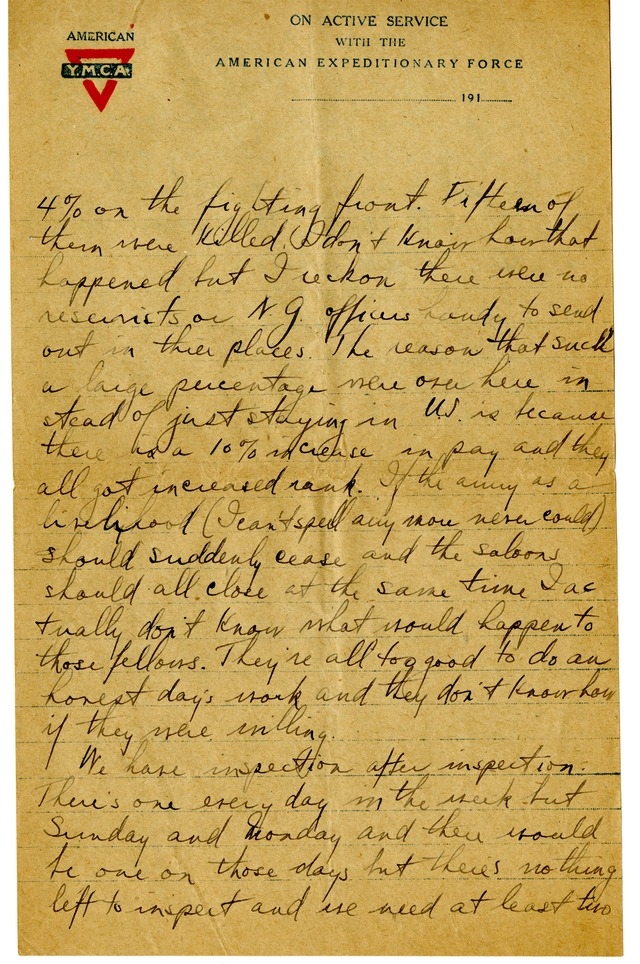 AMERICAN
Y.M.C.A.
ON ACTIVE SERVICE
WITH THE
AMERICAN EXPEDITIONARY FORCE
191
4% on the fighting front. Fifteen of
them were killed. I don't know how that
happened but I reckon there were no
reservists or N.G. officers handy to send
out in thier places. The reason that such
a large percentage were over here in
stead of just staying in U.S. is because
there is a 10% increase in pay and they
all got increased rank. If the army as a
livelihood (I can't spell any more never could)
should suddenly cease and the saloons
should all close at the same time I ac
tually don't know what would happen to
those fellows. They're all too good to do an
honest day's work and they don't know how
if they were willing.
We have inspection after inspection.
There's one every day in the week but
Sunday and Monday and there would
be one on those days but there's nothing
left to inspect and we need at least two